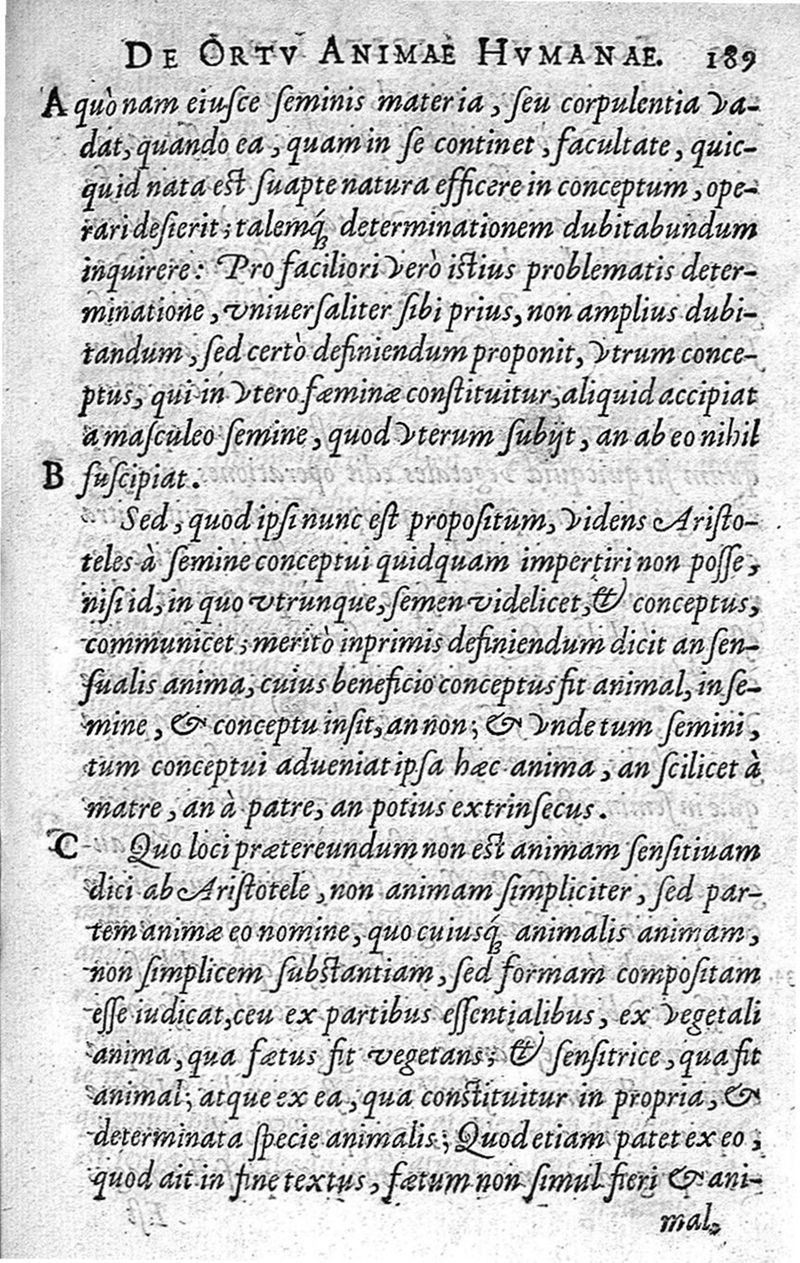 DE ORTV ANIMAE HVMANAE. 189
A quò nam eiuſce ſeminis materia, ſeu corpulentia va-
dat, quando ea, quam in ſe continet, facultate, quic-
quid nata est ſuapte natura efficere in conceptum, ope-
rari deſierit; talemq́; determinationem dubitabundum
inquirere: Pro faciliori verò istius problematis deter-
minatione, vniuerſaliter ſibi prius, non amplius dubi-
tandum, ſed certò definiendum proponit, vtrum conce-
ptus, qui in vtero fæminæ conſtituitur, aliquid accipiat
a maſculeo ſemine, quod vterum ſubijt, an ab eo nihil
B ſuſcipiat.
Sed, quod ipſi nunc eſt propoſitum, videns Ariſto-
teles à ſemine conceptui quidquam impertiri non poſſe,
niſi id, in quo vtrunque, ſemen videlicet, & conceptus,
communicet; meritò inprimis definiendum dicit an ſen-
ſualis anima, cuius beneficio conceptus fit animal, in ſe-
mine, & conceptu inſit, an non; & vnde tum ſemini,
tum conceptui adueniat ipſa hæc anima, an ſcilicet à
matre, an à patre, an potius extrinſecus.
C Quo loci prætereundum non est animam ſenſitiuam
dici ab Ariſtotele, non animam ſimpliciter, ſed par-
tem animæ eo nomine, quo cuiusq́; animalis animam,
non ſimplicem ſubstantiam, ſed formam compoſitam
eſſe iudicat, ceu ex partibus eſſentialibus, ex vegetali
anima, qua fætus fit vegetans; & ſenſitrice, qua fit
animal; atque ex ea, qua constituitur in propria, &
determinata ſpecie animalis; Quod etiam patet ex eo,
quod ait in fine textus, fætum non ſimul fieri & ani-
mal,